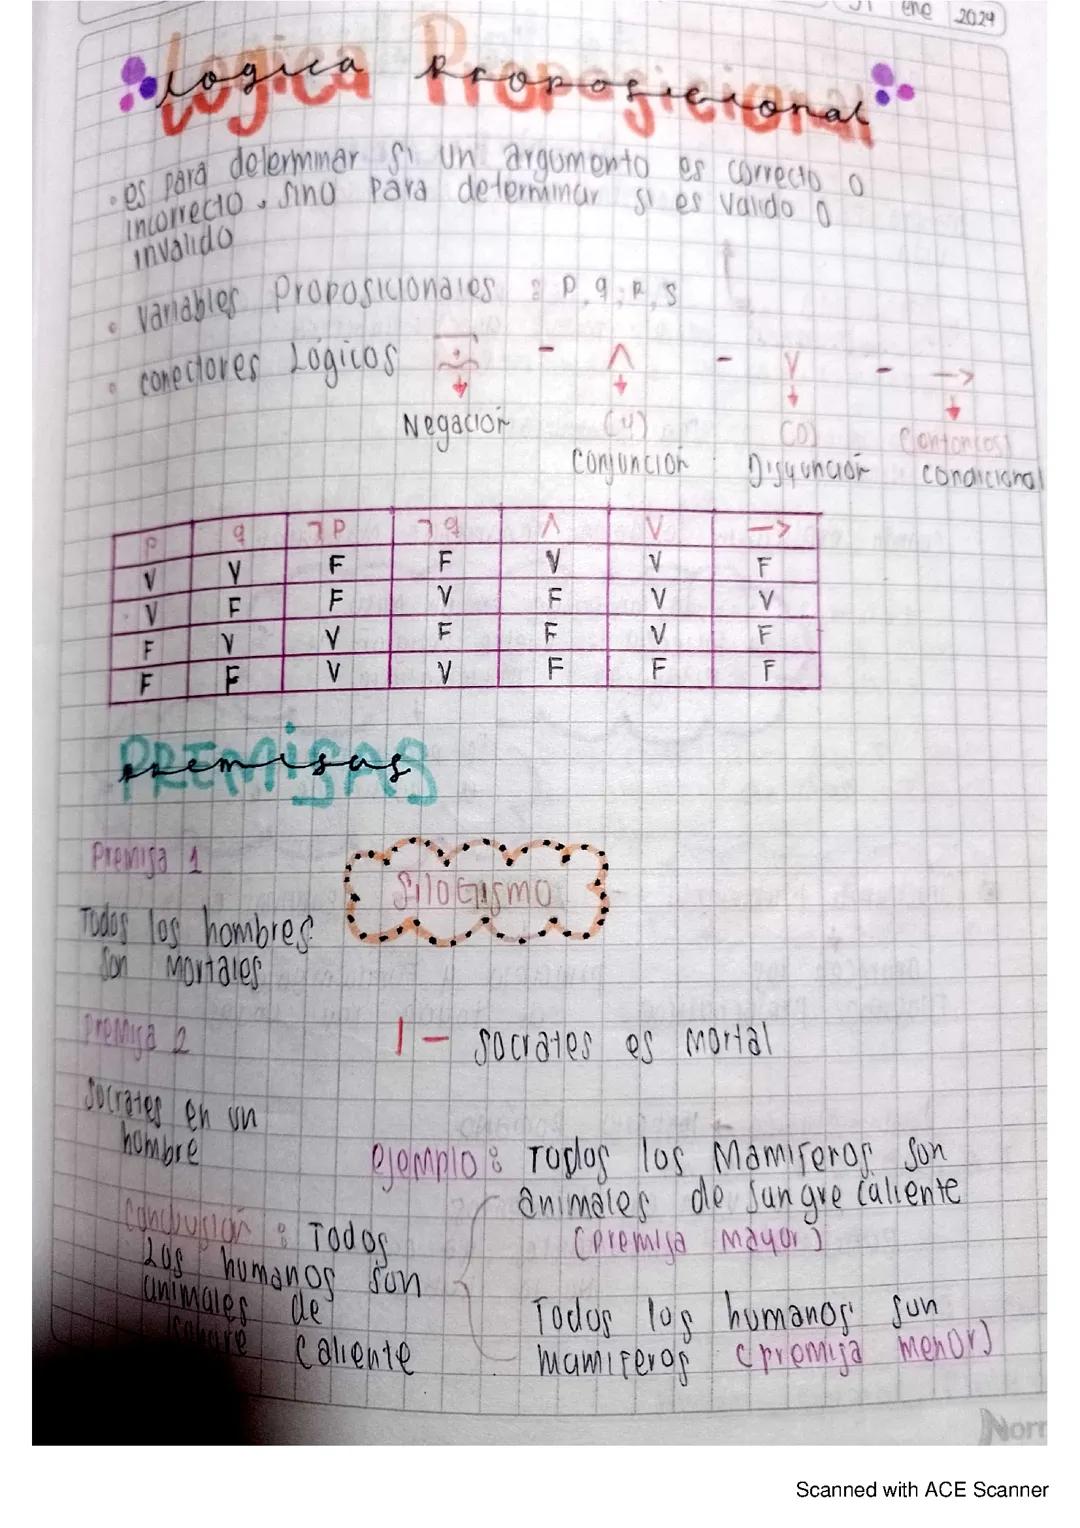 ene 2024
Logica Proposicional
• es para determinar si un argumento es correcto o
incorrecto, sino para determinar si es valido o
invalido
• Variables Proposicionales : P, q, R, S
• conectores Lógicos - ∧ - V - →
Negación (y) (o) (entonces)
Conjunción Disyunción condicional
p q ¬P ¬q ∧ V →
V V F F V V F
V F F V F V V
F V V F F V F
F F V V F F F
PREMISAS
premisas
Premisa 1
Silogismo
Todos los hombres
son Mortales
Premisa 2
|— Socrates es mortal
Socrates en un
hombre
ejemplo : Todos los Mamiferos son
animales de sangre caliente
(premisa mayor)
Conclusión : Todos
Los humanos son
animales de
sangre caliente
Todos los humanos son
mamiferos (premisa menor)
Norr
Scanned with ACE Scanner